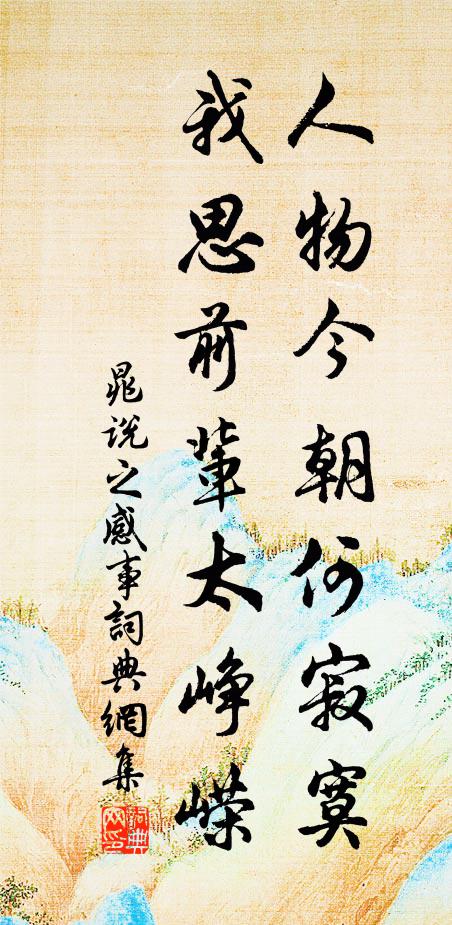 人物今朝何寂寞
我思前輩太峥嶸
晁说之感事詞典網集
詞典網印